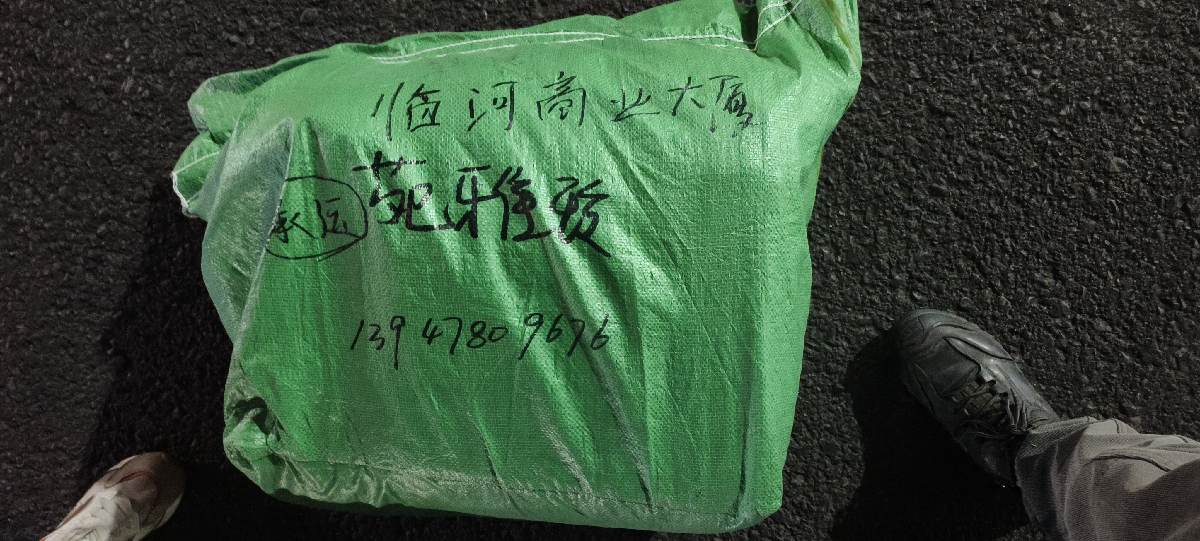 临河商业大厦
承运 苑雅俊发
13947809676